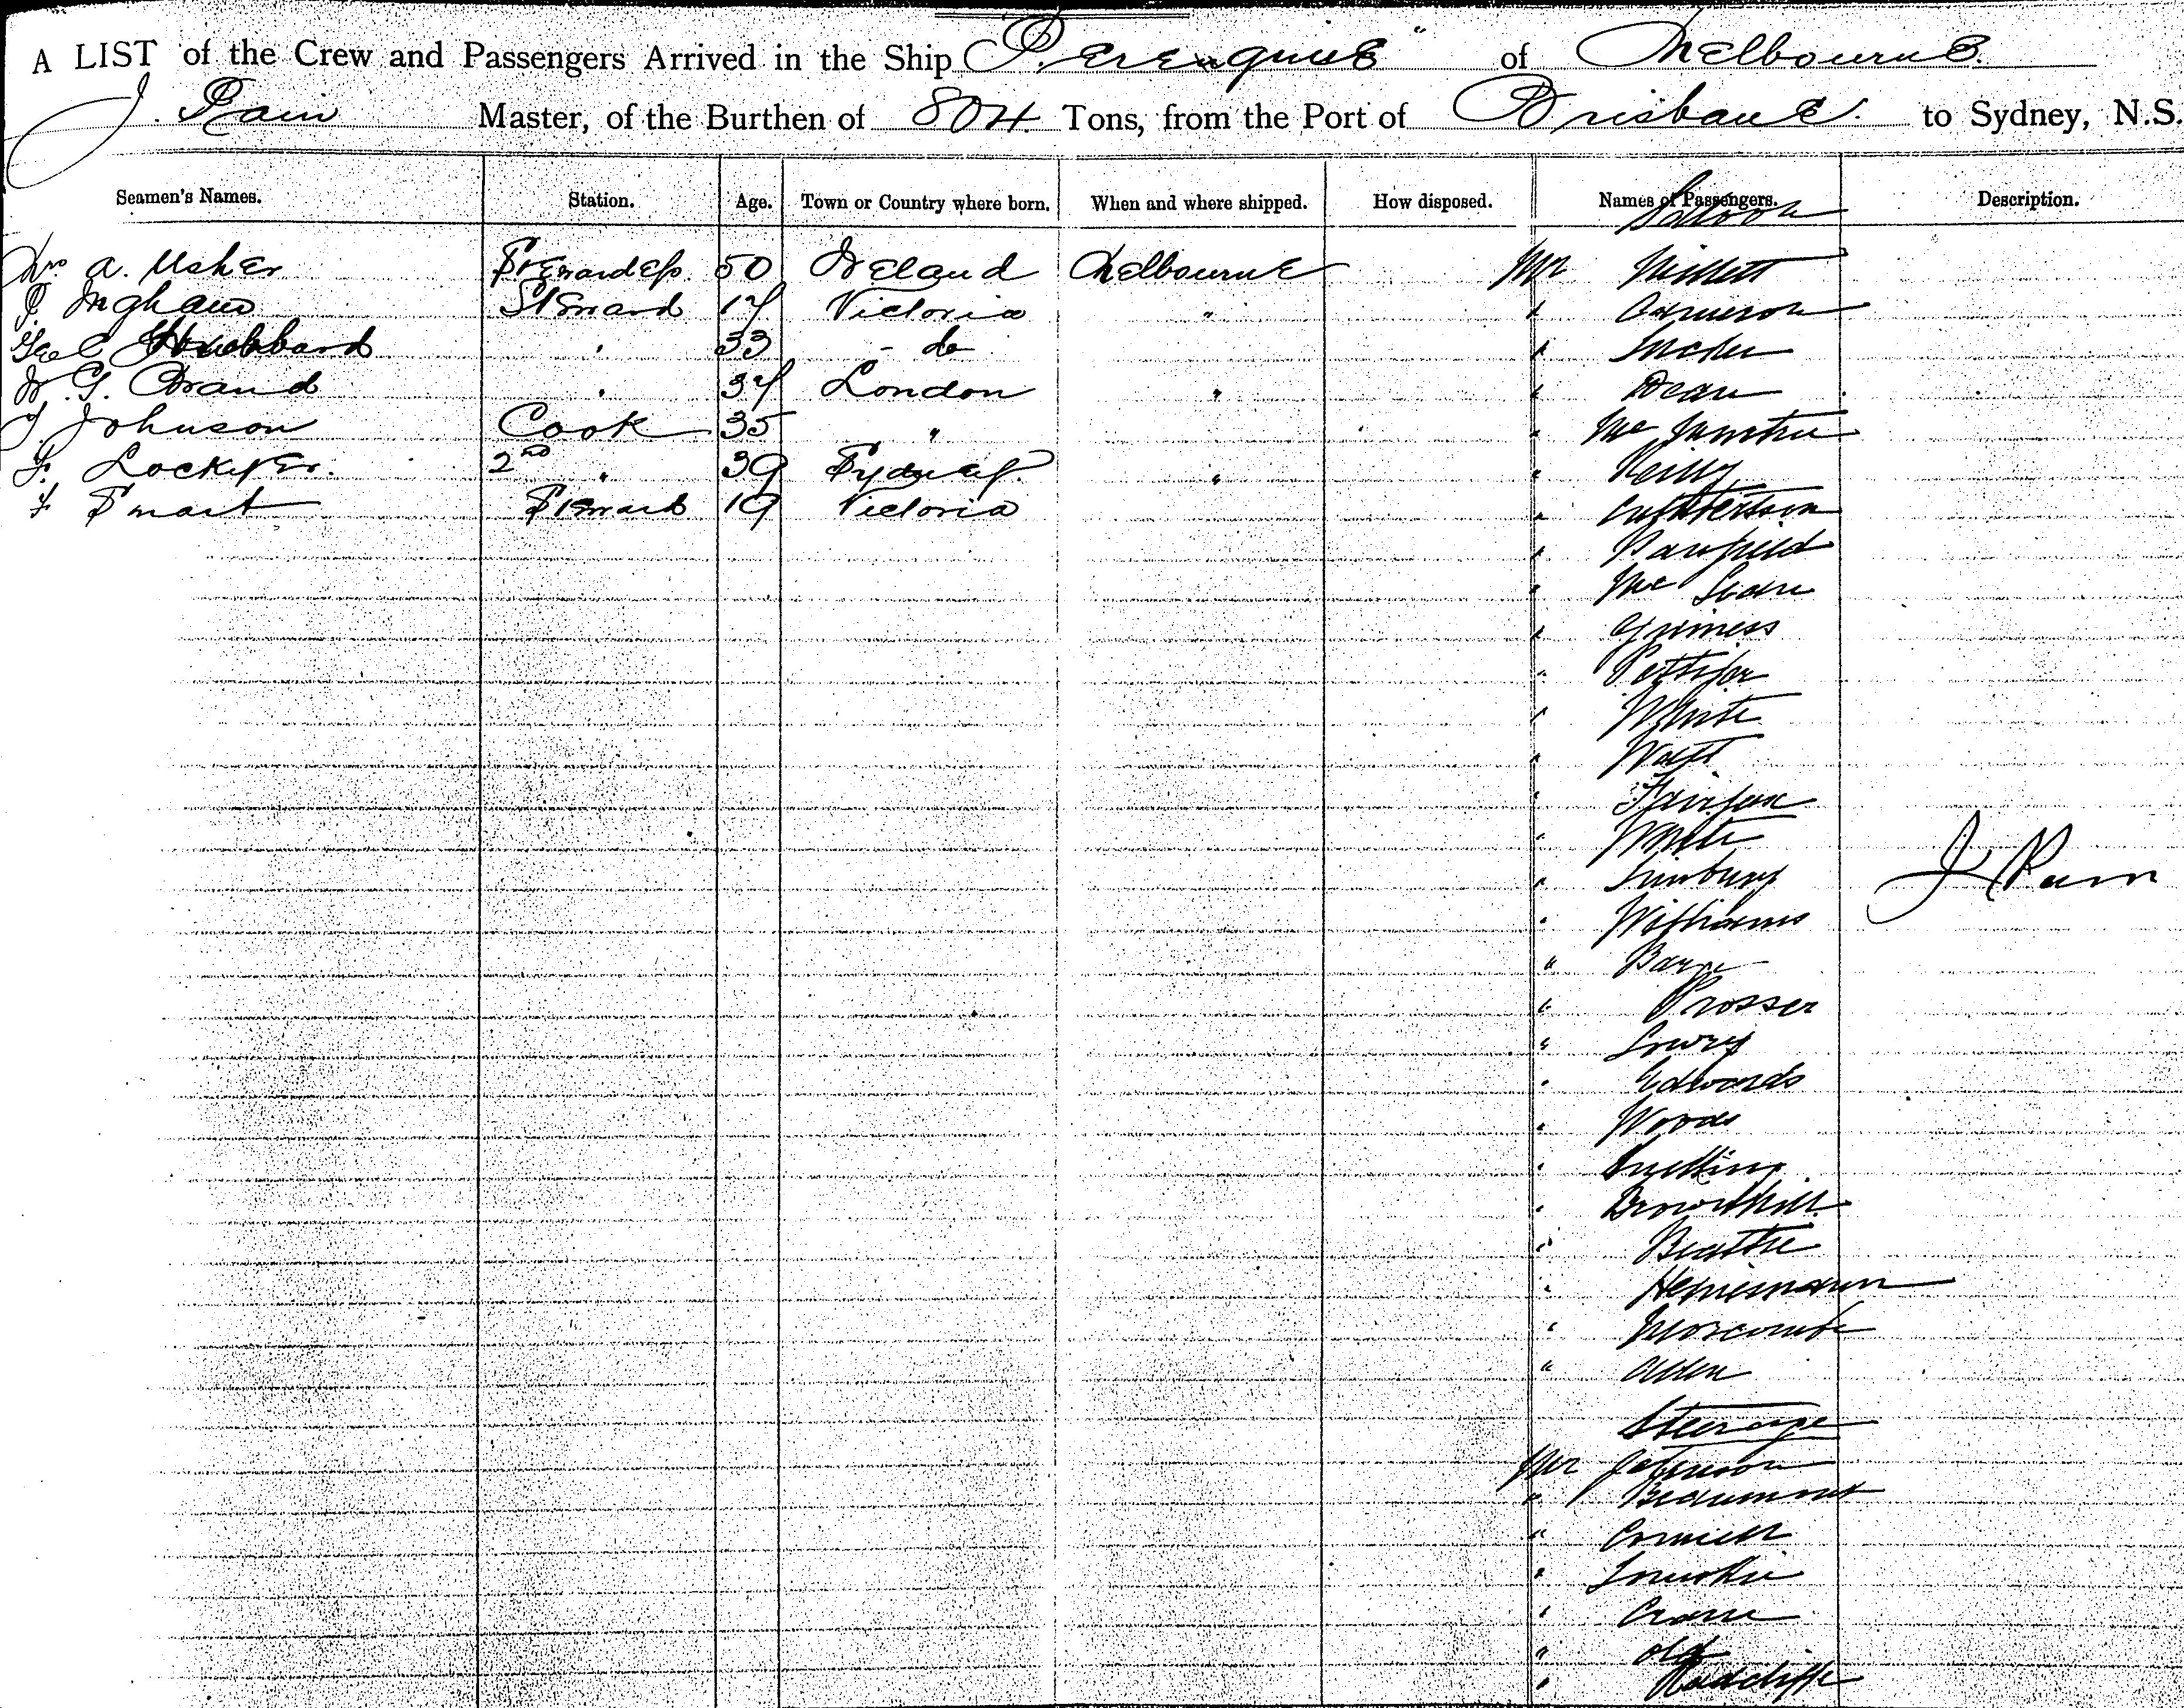 A LIST of the Crew and Passengers Arrived in the Ship "Peregrine" of Melbourne.
J. Pain Master, of the Burthen of 804 Tons, from the Port of Brisbane. to Sydney, N.S.
Seamen's Names. Station. Age. Town or Country where born. When and where shipped. How disposed. Names of Passengers. Description.
Saloon
Mrs A. Usher Stewardess 50 Ireland Melbourne Mr
Ingham Steward 17 Victoria " " Cameron
Geo C Hubbard " 33 - do "
W. G. Brand " 37 London " " Dean
J Johnson Cook 35 " "
F. Lockyer. 2nd " 39 Sydney. " " Reilly
F Smart Steward 19 Victoria " Cuthbertson
" Banfield
" Mc Lean
" Guiness
" Pettifer
" White
" Watt
" Fairfax
" White
"
" Williams
" Barr
" Prosser
" Lowry
" Edwards
" Woods
" Snelling
" Brownhill
" Beattie
" Heinemann
" Morcombe
" Allen
J Pain
Steerage
Mr Johnson
" Beaumont
"
"
" Crane
" Old
" Radcliffe